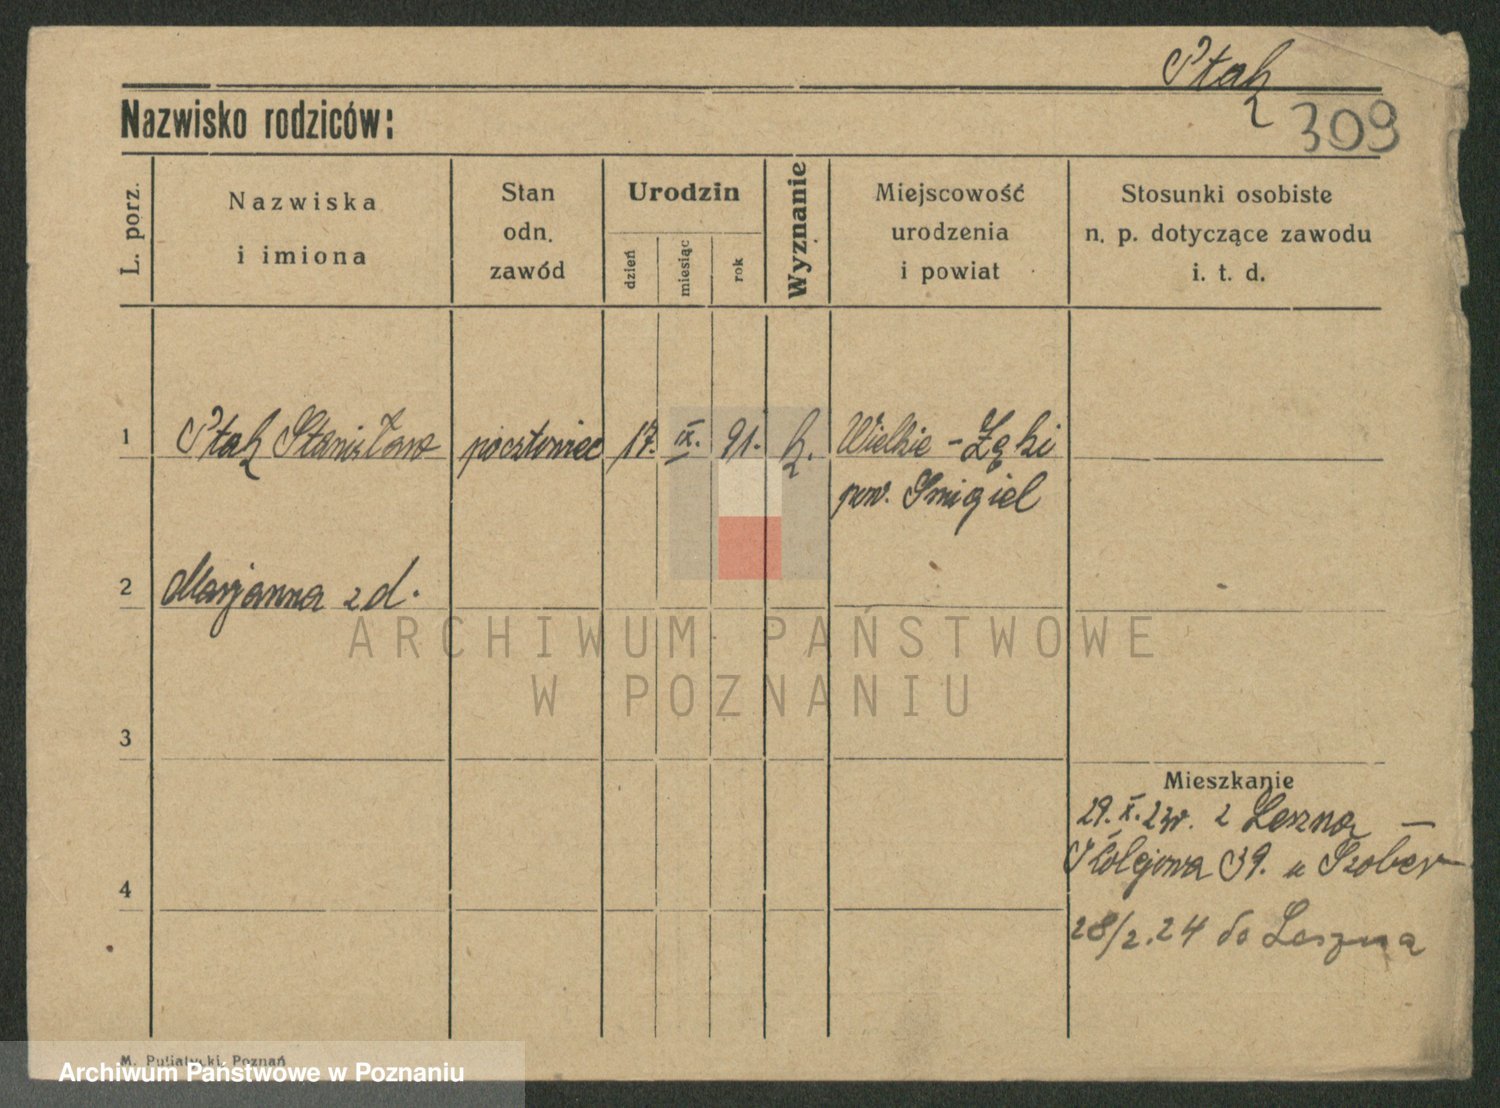 Ptak
309
Nazwisko rodziców:
L. porz.
Nazwiska
i imiona
Stan
odn.
zawód
Urodzin
dzień
miesiąc
rok
Wyznanie
Miejscowość
urodzenia
i powiat
Stosunki osobiste
n. p. dotyczące zawodu
i. t. d.
1 Ptak Stanisław pocztowiec 17. IX. 91. k. Wielkie - Łęki
pow. Śmigiel
2 Marjanna z d.
ARCHIWUM PAŃSTWOWE
W POZNANIU
3
Mieszkanie
29. X. 23r. z Leszna —
Kolejowa 39. u Szober
4
28/2.24 do Leszna
M. Putiatycki, Poznań
Archiwum Państwowe w Poznaniu